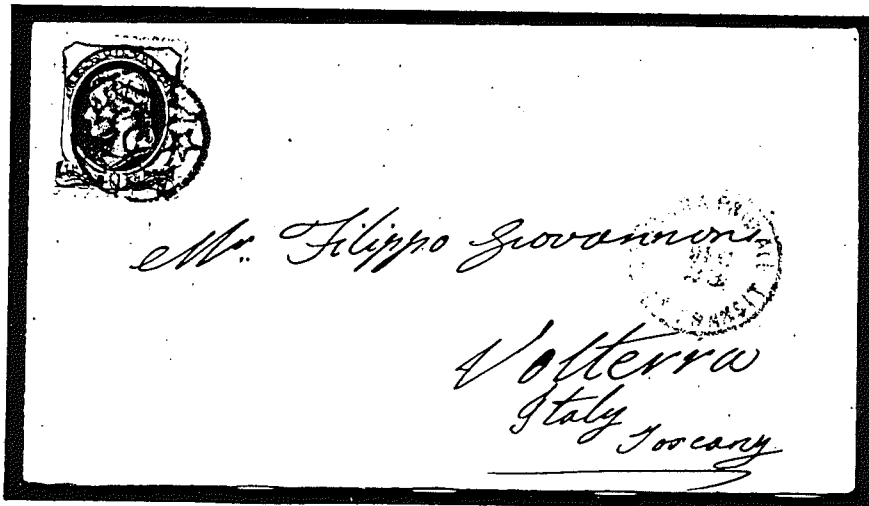 Mr. Filippo Giovannoni
TRANSIT
Volterra
Italy
Toscany